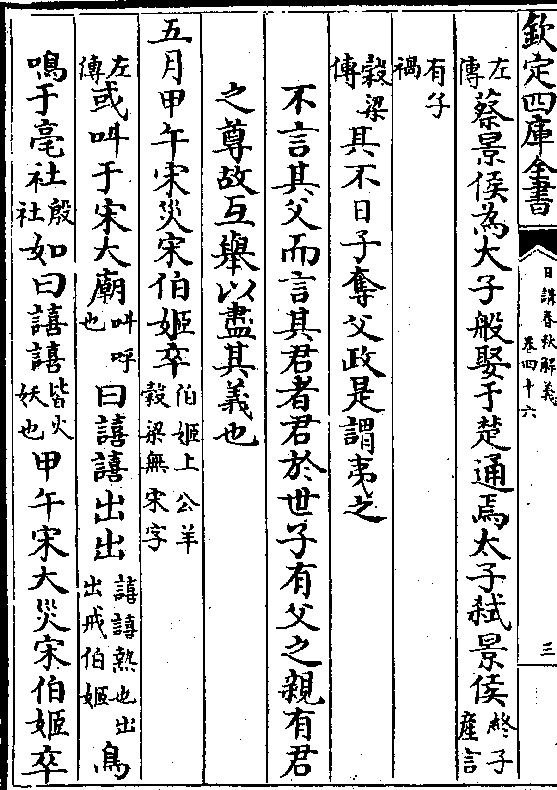 欽定四庫全書
日講春秋解義
卷四十六
三
左傳蔡景侯為大子般娶于楚通焉太子弑景侯終子產言
有子禍
穀梁傳其不日子奪父政是謂夷之
不言其父而言其君者君於世子有父之親有君
之尊故互舉以盡其義也
五月甲午宋災宋伯姬卒伯姬上公羊穀梁無宋字
左傳或叫于宋大廟叫呼也曰譆譆出出譆譆熱也出出戒伯姬鳥
鳴于亳社殷社如曰譆譆皆火妖也甲午宋大災宋伯姬卒